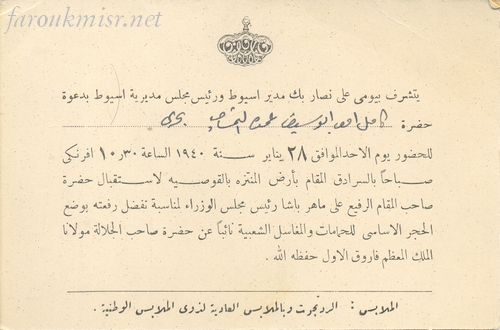 faroukmisr.net
يتشرف بيومى على نصار بك مدير اسيوط ورئيس مجلس مديرية اسيوط بدعوة
حضرة كامل عمدة بحرى
للحضور يوم الاحد الموافق ٢٨ يناير سنة ١٩٤٠ الساعة ٣٠ر١٠ افرنكى
صباحاً بالسرادق المقام بأرض المنتزه بالقوصيه لاستقبال حضرة
صاحب المقام الرفيع على ماهر باشا رئيس مجلس الوزراء لمناسبة تفضل رفعته بوضع
الحجر الاساسى للحمامات والمغاسل الشعبية نائباً عن حضرة صاحب الجلالة مولانا
الملك المعظم فاروق الاول حفظه الله .
الملابس : الردنجوت وبالملابس العادية لذوى الملابس الوطنية .